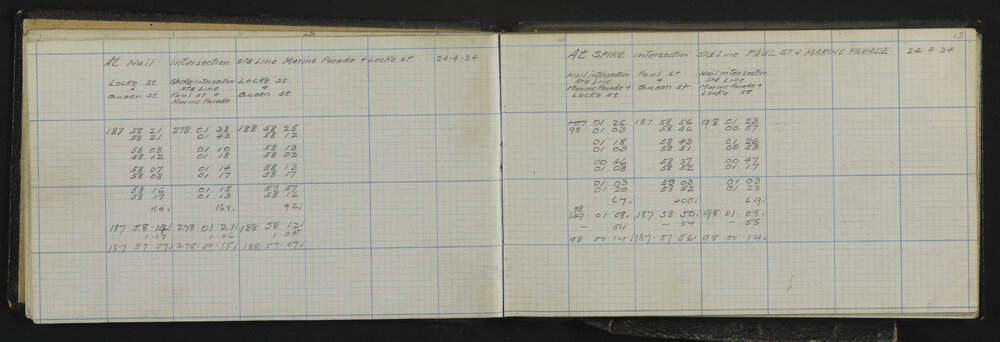 At Nail intersection Std Line Marine Parade & Locke St 24.4.34
Locke St & Queen St
Spike intersection Std Line Paul St & Marine Parade
Locke St & Queen St
187 58 21 278 01 38 188 58 25
58 21 01 43 58 12
58 08 01 10 58 13
58 12 01 18 58 03
58 07 01 14 58 13
58 08 01 17 58 17
58 16 01 15 57 57
58 17 01 13 58 16
110 168 96
187.58 14 278.01 21 188 58 12
1.07 1.06 1.05
187.57.07 278.00.15 188.57.07
13
At SPIKE intersection Std Line PAUL St & MARINE PARADE 24 4 34
Nail intersection Std Line Marine Parade & Locke St
Paul St & Queen St
Nail intersection Std Line Marine Parade & Locke St
01 26 187 58 56 98 01 23
98 01 03 58 46 00 57
01 18 58 43 01 26
01 03 58 51 00 58
00 46 58 37 00 47
01 08 58 52 01 17
01 03 59 03 01 03
01 20 58 52 01 23
67 400 69
98
01 08 187 58 50 98 01 09
— 54 — 54 — 55
98.00 14 187.57 56 98.00.14